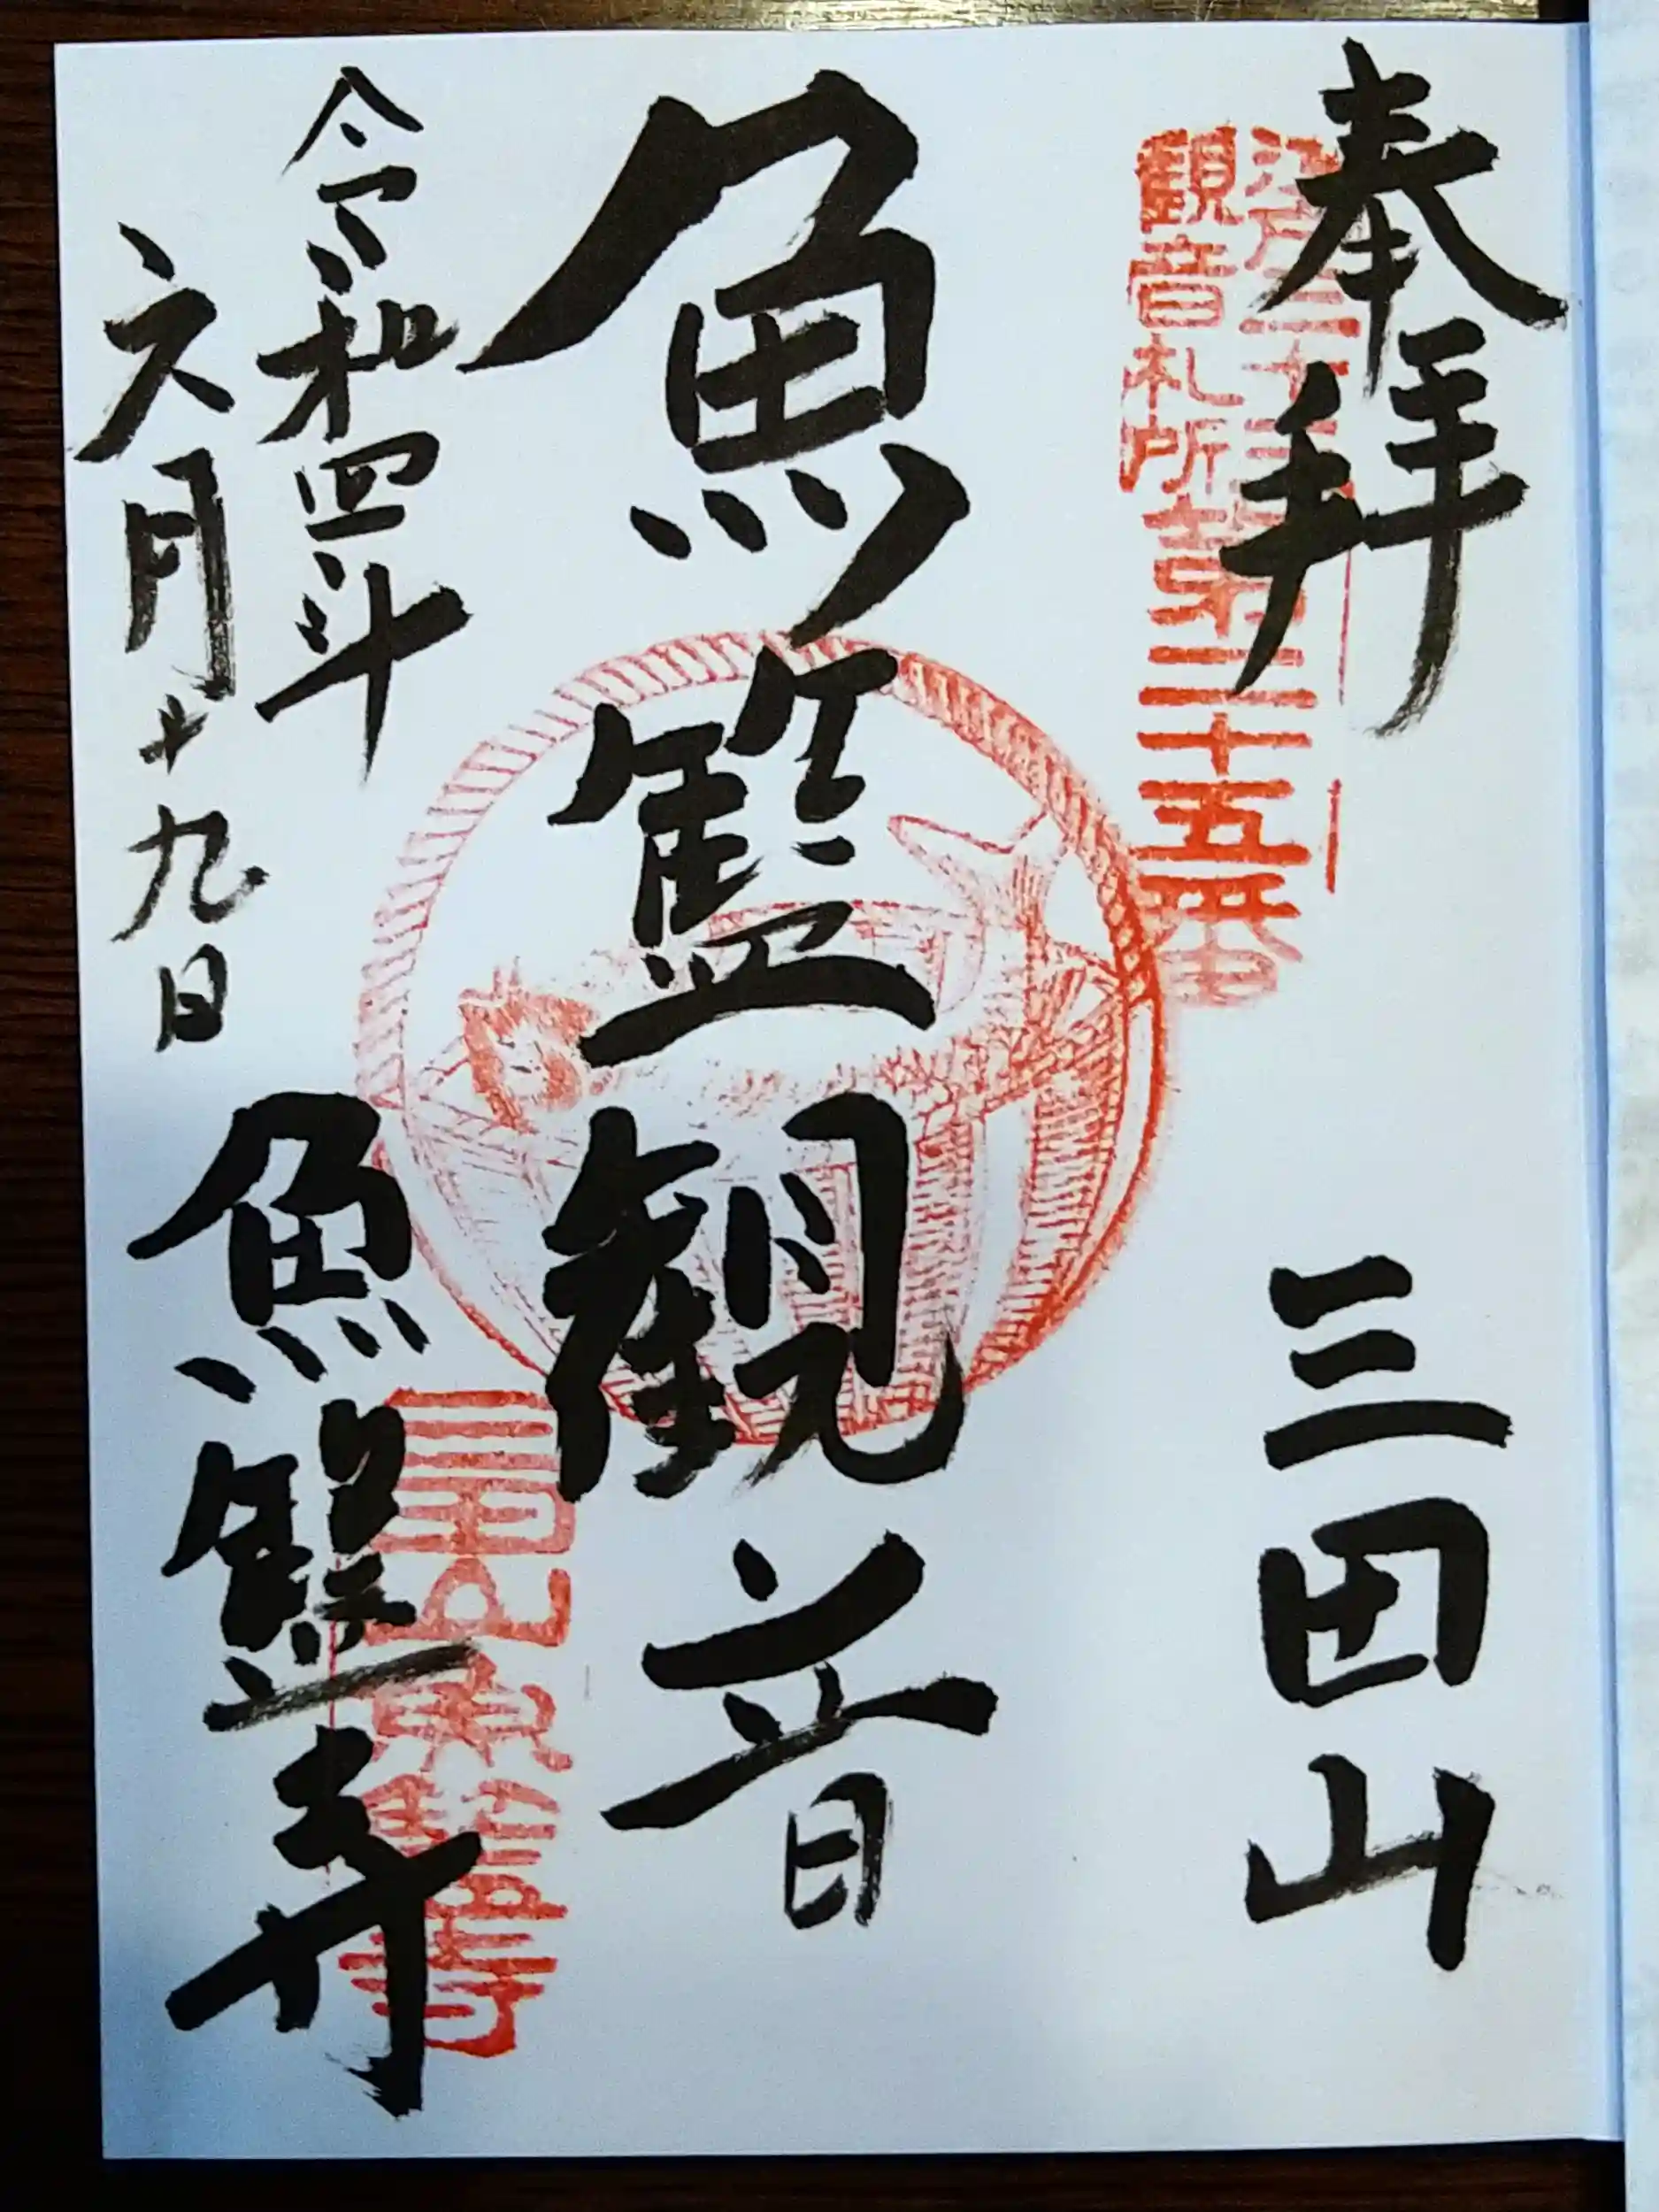 奉拝 三田山
江戸三十三
観音札所
第二十五番
魚籃観音
令和四年
六月十九日
魚籃寺
三田山魚籃寺